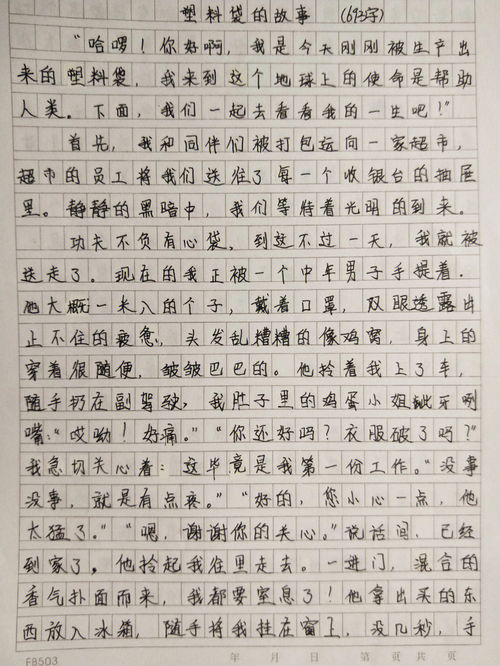 塑料袋的故事 (693字)
“哈啰！你好啊，我是今天刚刚被生产出
来的塑料袋，我来到这个地球上的使命是帮助
人类。下面，我们一起去看看我的一生吧！”
首先，我和同伴们被打包运向一家超市，
超市的员工将我们送往了每一个收银台的抽屉
里。静静的黑暗中，我们等待着光明的到来。
功夫不负有心袋，到这不过一天，我就被
送走了。现在的我正被一个中年男子手提着.
他大概一米八的个子，戴着口罩，双眼透露出
止不住的疲惫，头发乱糟糟的像鸡窝，身上的
穿着很随便，皱皱巴巴的。他拎着我上了车，
随手扔在副驾驶，我肚子里的鸡蛋小姐龇牙咧
嘴：“哎呦！好痛。”“你还好吗？衣服破了吗？”
我急切关心着：这毕竟是我第一份工作。“没事
没事，就是有点疼。”“好的，您小心一点，他
太猛了。”“嗯，谢谢你的关心。”说话间，已经
到家了。他拎起我往里走去。一进门，混合的
香气扑面而来，我都要窒息了！他拿出买的东
西放入冰箱，随手将我挂在窗上，没几秒，手
F8503 年 月 日 第 页 共 页